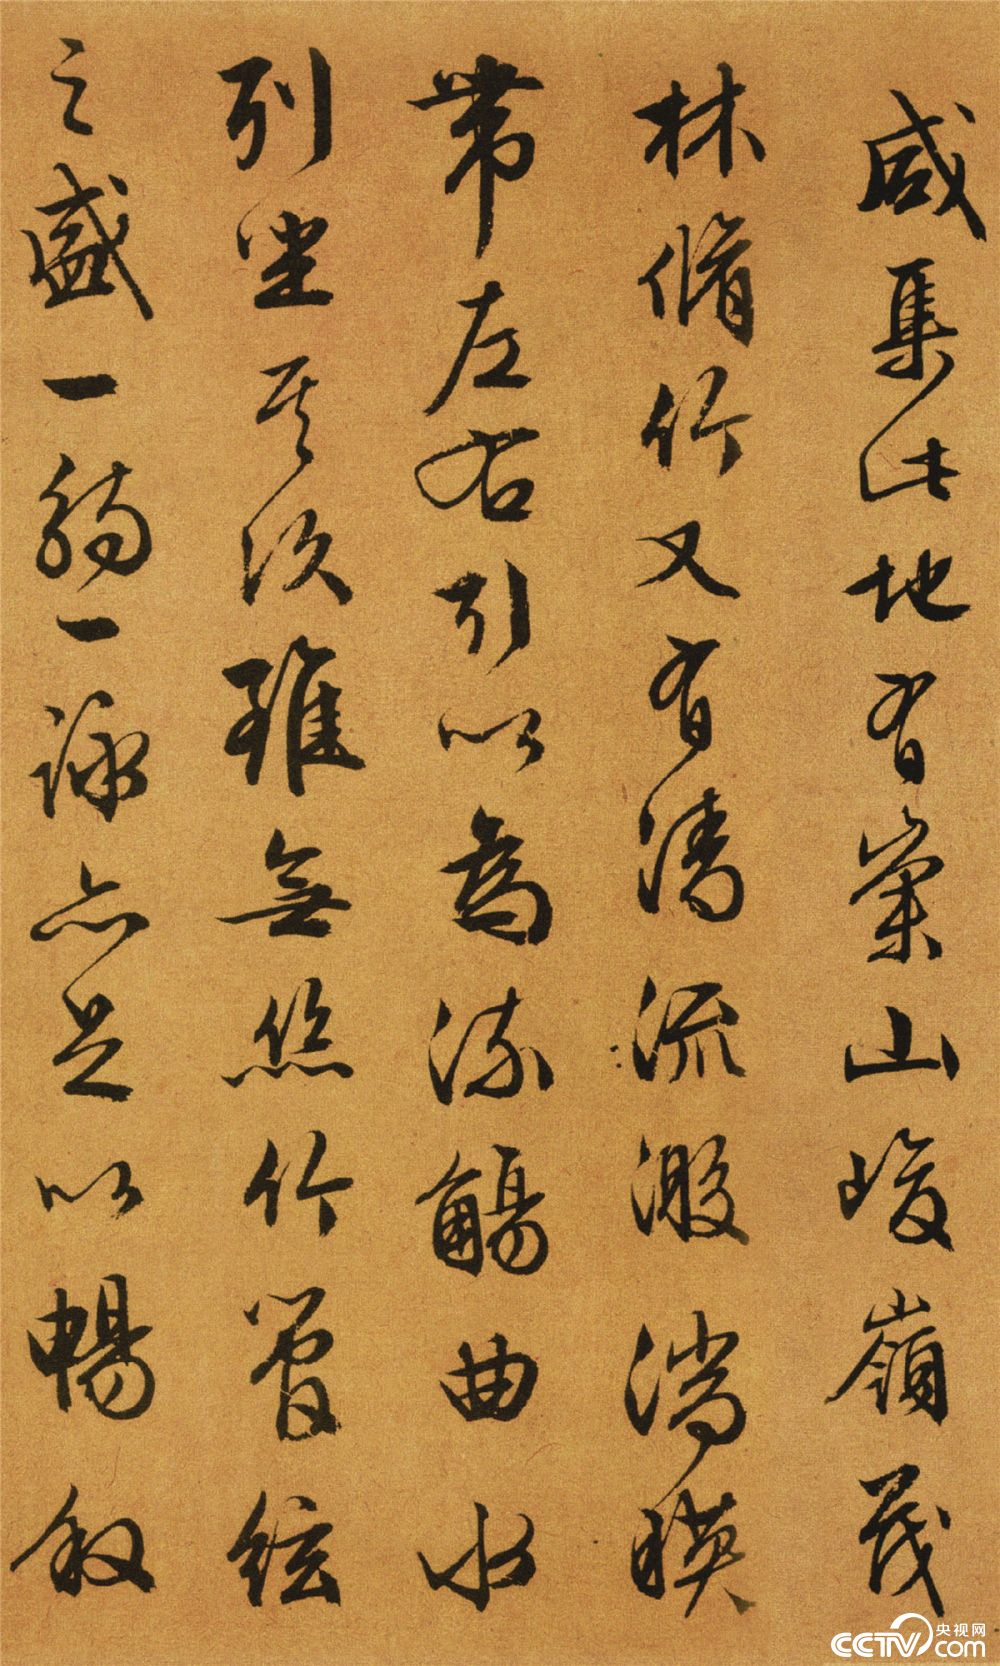 咸集此地有崇山峻嶺茂
林脩竹又有清流激湍暎
帶左右引以為流觴曲水
列坐其次雖無絲竹管絃
之盛一觴一詠亦足以暢敘
CCTV.com 央视网